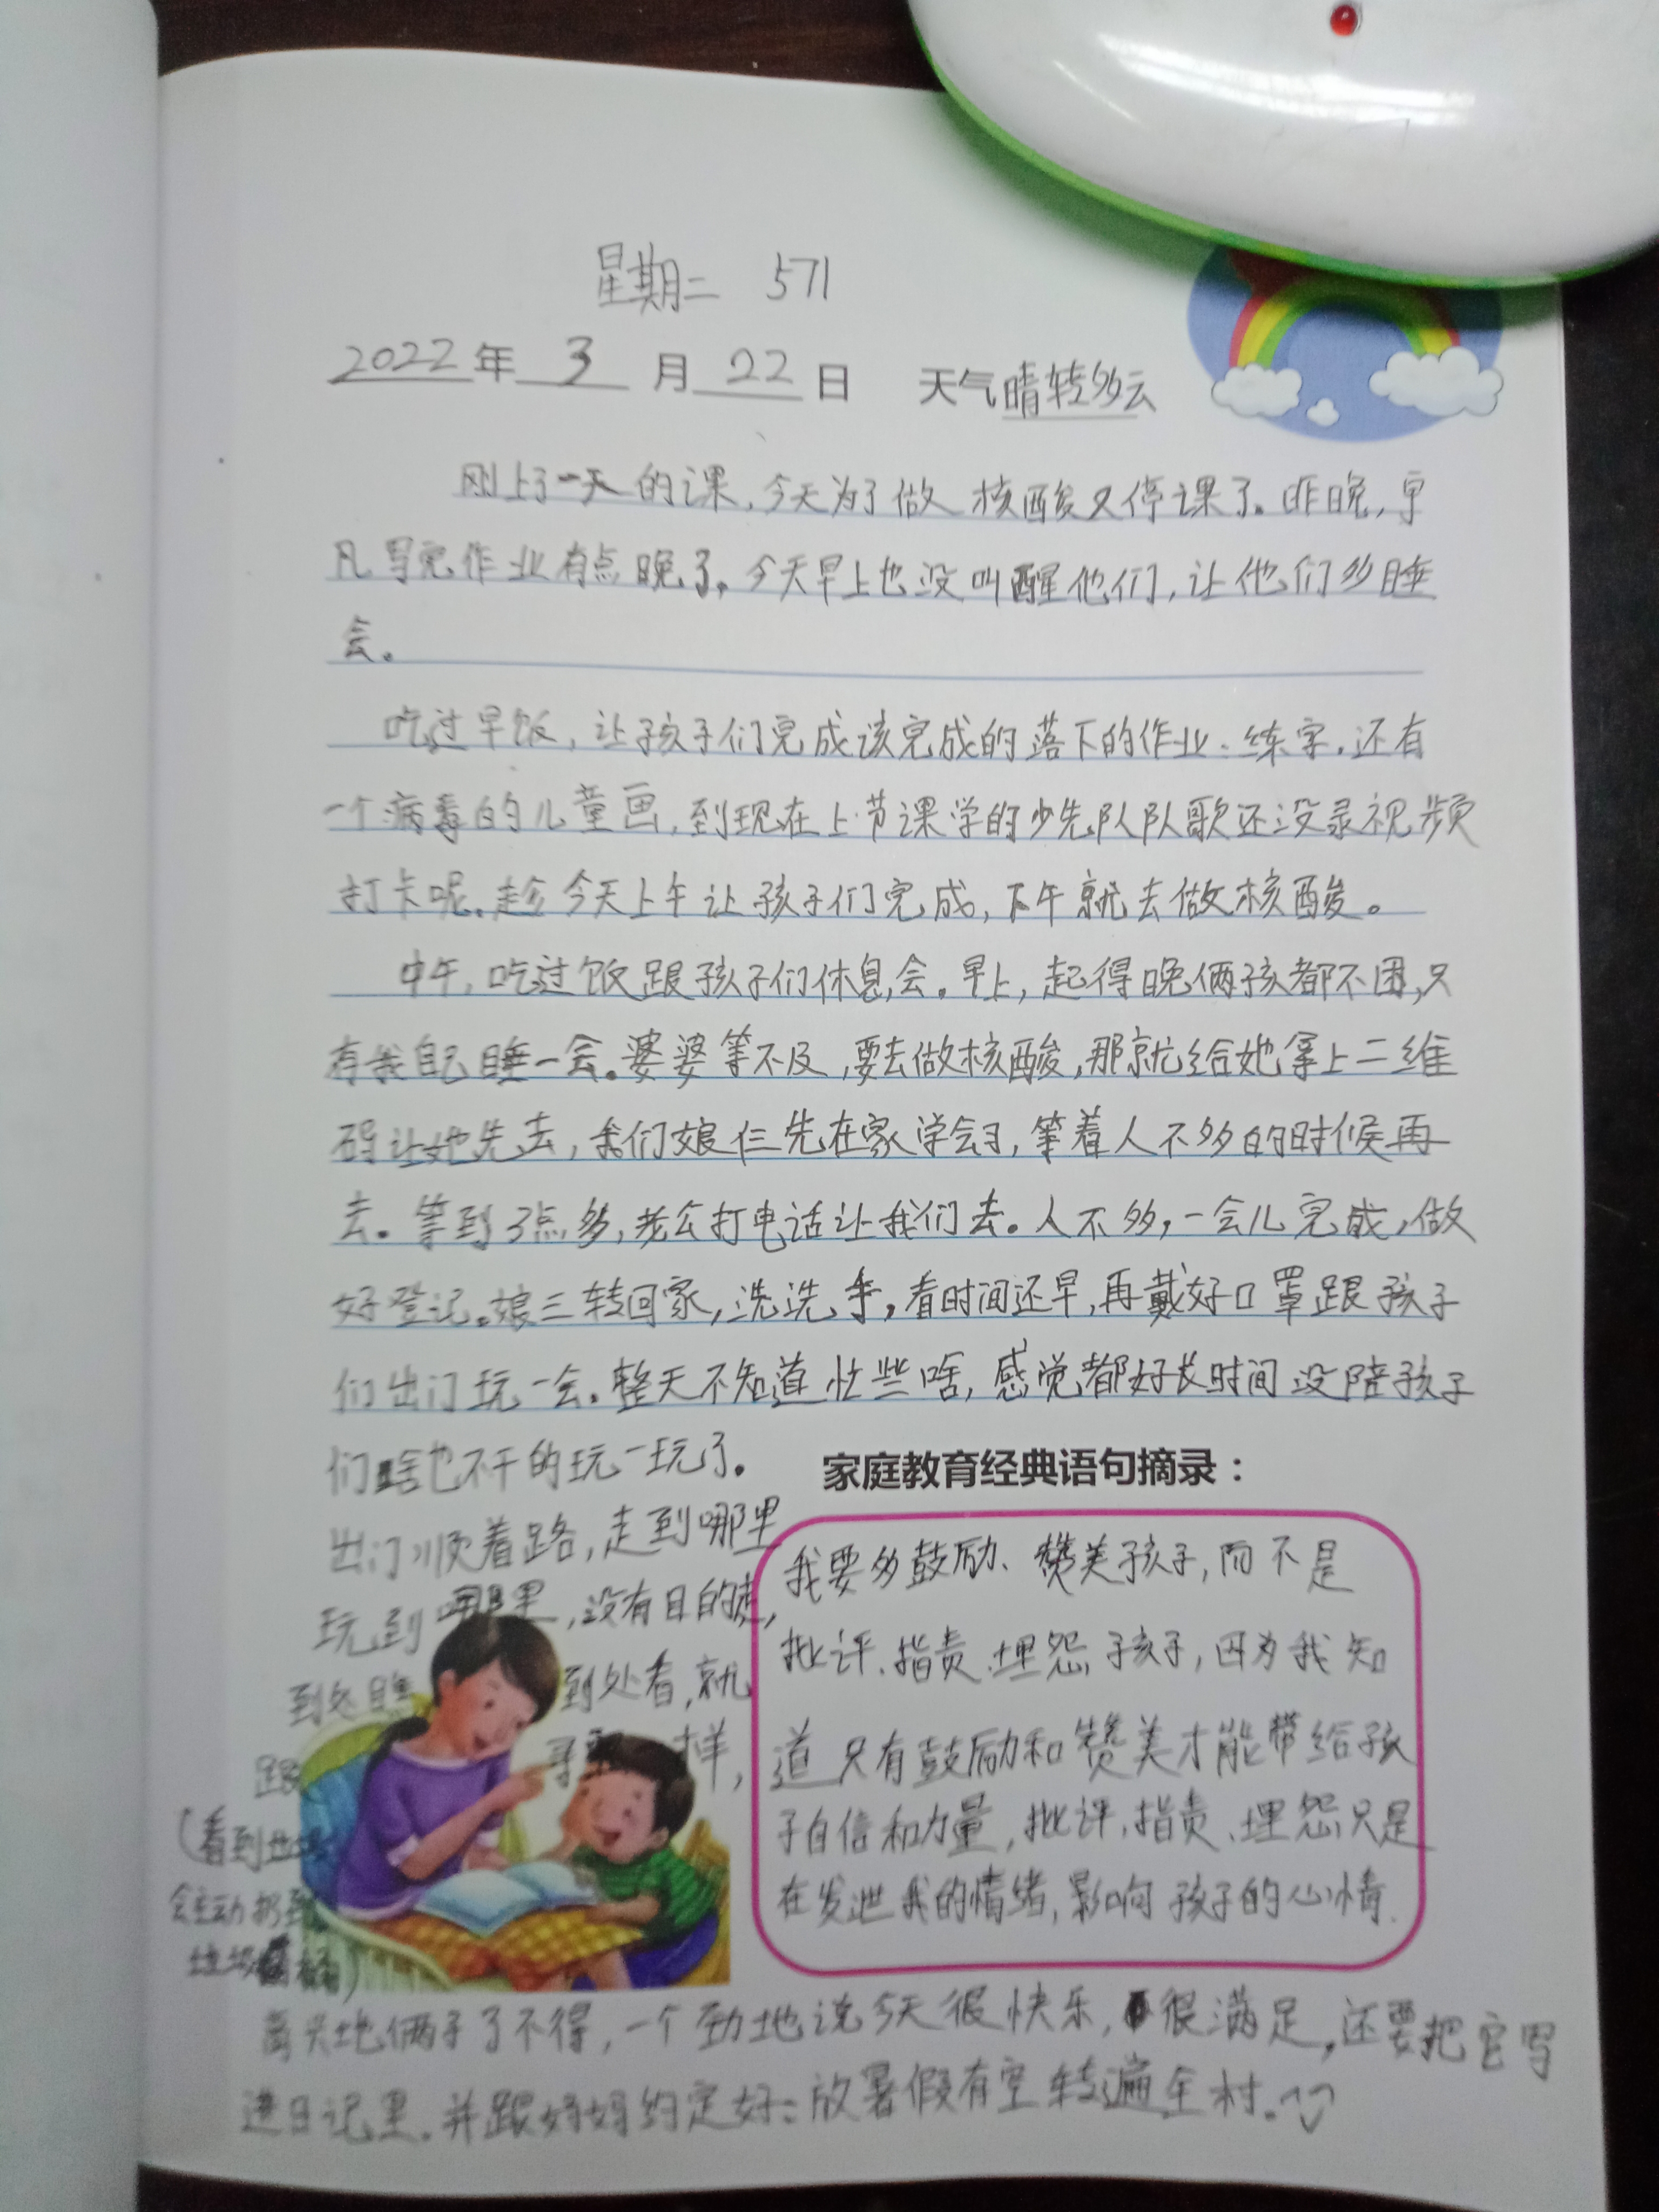 星期二 571
2022年 3 月 22 日 天气晴转多云
刚上了一天的课,今天为了做核酸又停课了。昨晚,宇
凡写完作业有点晚了。今天早上也没叫醒他们,让他们多睡
会。
吃过早饭,让孩子们完成该完成的落下的作业:练字,还有
一个病毒的儿童画,到现在上节课学的少先队队歌还没录视频
打卡呢。趁今天上午让孩子们完成,下午就去做核酸。
中午,吃过饭跟孩子们休息会。早上,起得晚俩孩都不困,只
有我自己睡一会。婆婆等不及,要去做核酸,那就给她拿上二维
码让她先去,我们娘仨先在家学会习,等着人不多的时候再
去。等到3点多,老公打电话让我们去。人不多,一会儿完成,做
好登记。娘三转回家,洗洗手,看时间还早,再戴好口罩跟孩子
们出门玩一会。整天不知道忙些啥,感觉都好长时间没陪孩子
们啥也不干的玩一玩了。
出门顺着路,走到哪里
玩到哪里,没有目的走,
到处 到处看,就
跟 寻 一样,
(看到垃圾
会主动扔到
垃圾桶)
高兴地俩子了不得,一个劲地说今天很快乐,很满足,还要把它写
进日记里。并跟妈妈约定好:放暑假有空转遍全村。
家庭教育经典语句摘录:
我要多鼓励、赞美孩子,而不是
批评、指责、埋怨孩子,因为我知
道只有鼓励和赞美才能带给孩
子自信和力量,批评、指责、埋怨只是
在发泄我的情绪,影响孩子的心情.